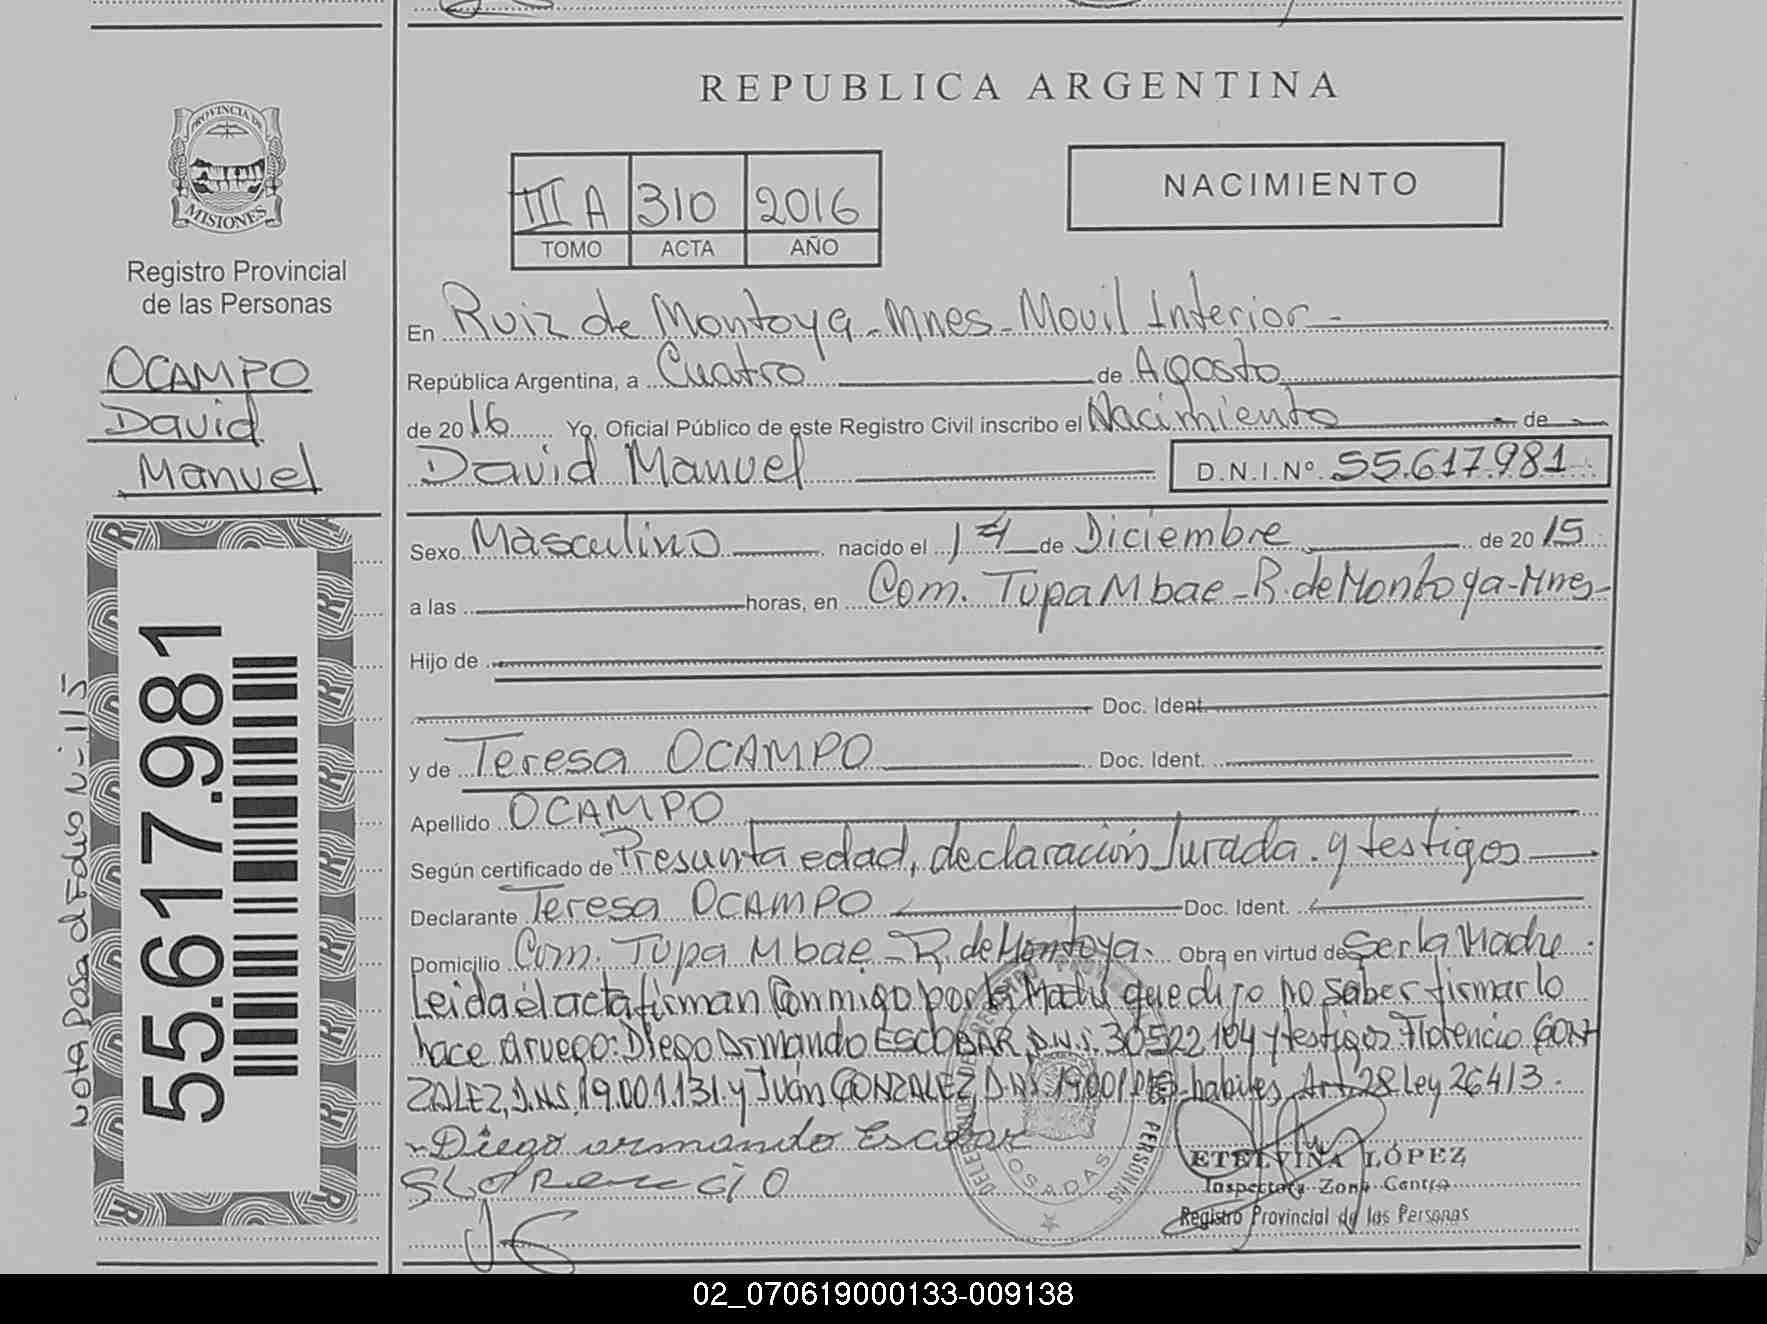 REPUBLICA ARGENTINA
PROVINCIA DE
MISIONES
Registro Provincial
de las Personas
OCAMPO
David
Manuel
III A 310 2016
TOMO ACTA AÑO
NACIMIENTO
En Ruiz de Montoya - Mnes - Movil Interior -
República Argentina, a Cuatro de Agosto
de 2016 Yo, Oficial Público de este Registro Civil inscribo el Nacimiento de
David Manuel D.N.I.Nº 55.617.981
Sexo Masculino nacido el 14 de Diciembre de 2015
a las horas, en Com. Tupa Mbae - R. de Montoya - Mnes -
Hijo de
Doc. Ident.
y de Teresa OCAMPO Doc. Ident.
Apellido OCAMPO
Según certificado de Presunta edad, declaración Jurada. y testigos
Declarante Teresa OCAMPO Doc. Ident.
Domicilio Com. Tupa Mbae - R. de Montoya. Obra en virtud de Ser la Madre
Leida el acta firman Conmigo por la Madre que dijo no saber firmar lo
hace a ruego: Diego Armando ESCOBAR D.N.I. 30522104 y testigos Florencio GON
ZALEZ, D.N.I. 19.001.131 y Juan GONZALEZ, D.N.I. habiles, Art. 28 Ley 26413.
Diego armando Escobar
Florencio
JG
POSADAS
PERSONAS
ETELVINA LÓPEZ
Inspectora Zona Centro
Registro Provincial de las Personas
55.617.981
Nota Pasa al Folio N- 115
02_070619000133-009138